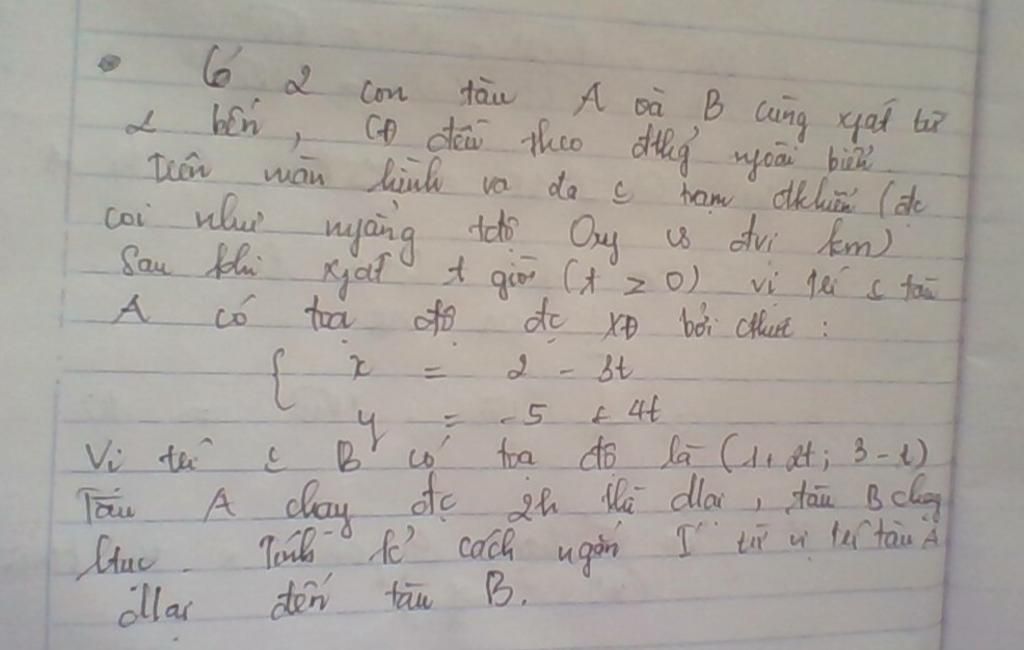 Có 2 con tàu A và B cùng xpát từ
2 bến, CĐ đều theo đthg ngoài biển
Trên màn hình ra đa c trạm đkhiển (đc
coi như mpẳng tđộ Oxy vs đvị km)
Sau khi xpát t giờ (t ≥ 0) vị trí c tàu
A có toạ độ đc XĐ bởi cthuc :
{ x = 2 - 3t
y = -5 + 4t
Vị trí c B có toạ độ là (1+2t; 3-t)
Tàu A chạy đc 2h thì dlại, tàu B chạy
ttục. Tính k/ cách ngắn I từ vị trí tàu A
dlại đến tàu B.